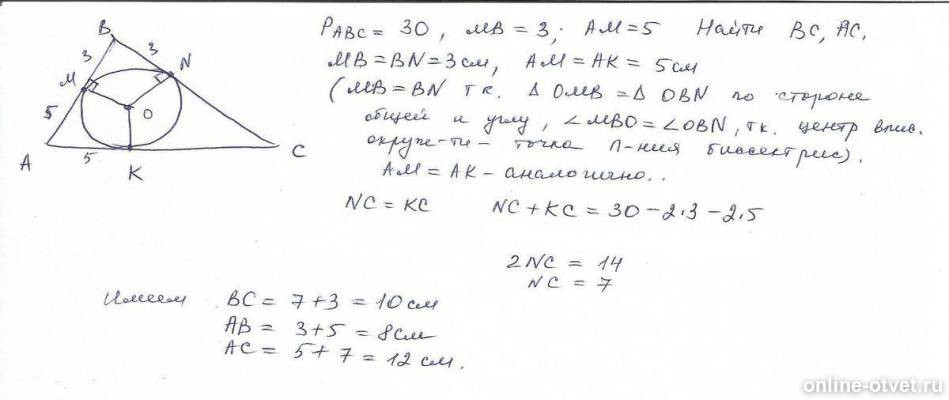 P_ABC = 30, MB = 3; AM = 5 Найти BC, AC.
MB = BN = 3 см, AM = AK = 5 см
(MB = BN т.к. Δ OMB = Δ OBN по стороне
общей и углу, ∠MBO = ∠OBN, т.к. центр впис.
окруж-ти - точка п-ния биссектрис).
AM = AK - аналогично..
NC = KC NC + KC = 30 - 2·3 - 2·5
2NC = 14
NC = 7
Имеем BC = 7 + 3 = 10 см
AB = 3 + 5 = 8 см
AC = 5 + 7 = 12 см.
B
3 3
M N
5 O
A 5 K C
online-otvet.ru